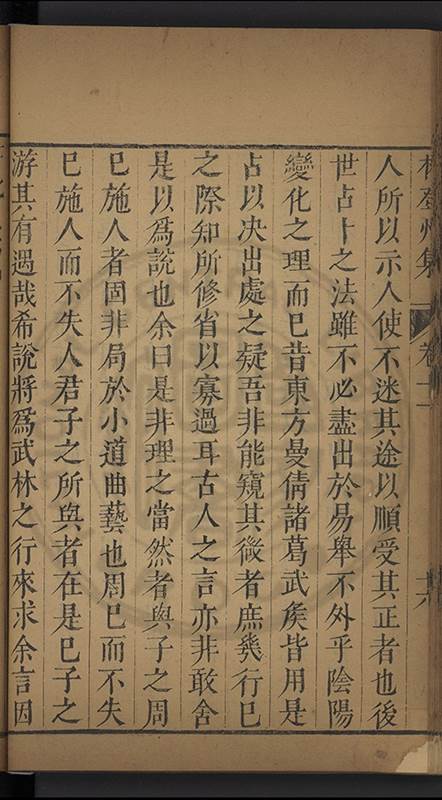 林登州集 卷十一 十六
人所以示人使不迷其途以順受其正者也後
世占卜之法雖不必盡出於易舉不外乎陰陽
變化之理而已昔東方曼倩諸葛武矦皆用是
占以决出處之疑吾非能窺其微者庶㡬行已
之際知所修省以寡過耳古人之言亦非敢舍
是以為說也余曰是非理之當然者與子之周
已施人者固非局於小道曲藝也周已而不失
已施人而不失人君子之所與者在是已子之
游其有遇哉希說將為武林之行來求余言因